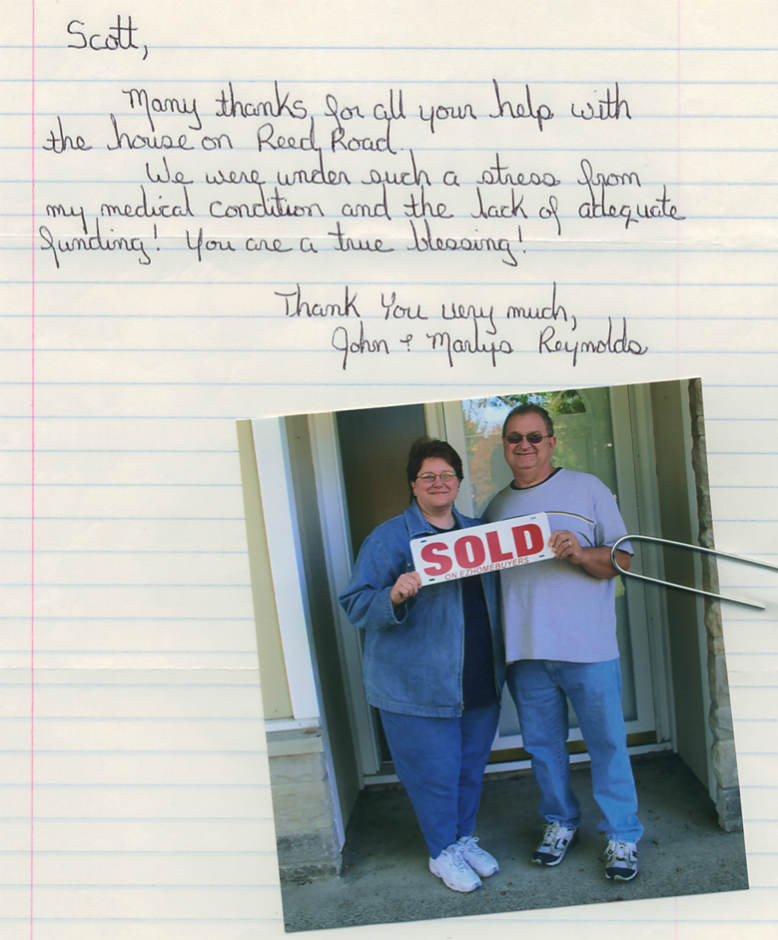 Scott,
Many thanks for all your help with
the house on Reed Road.
We were under such a stress from
my medical condition and the lack of adequate
funding! You are a true blessing!
Thank You very much,
John & Marlys Reynolds
SOLD
ON EZHOMEBUYERS